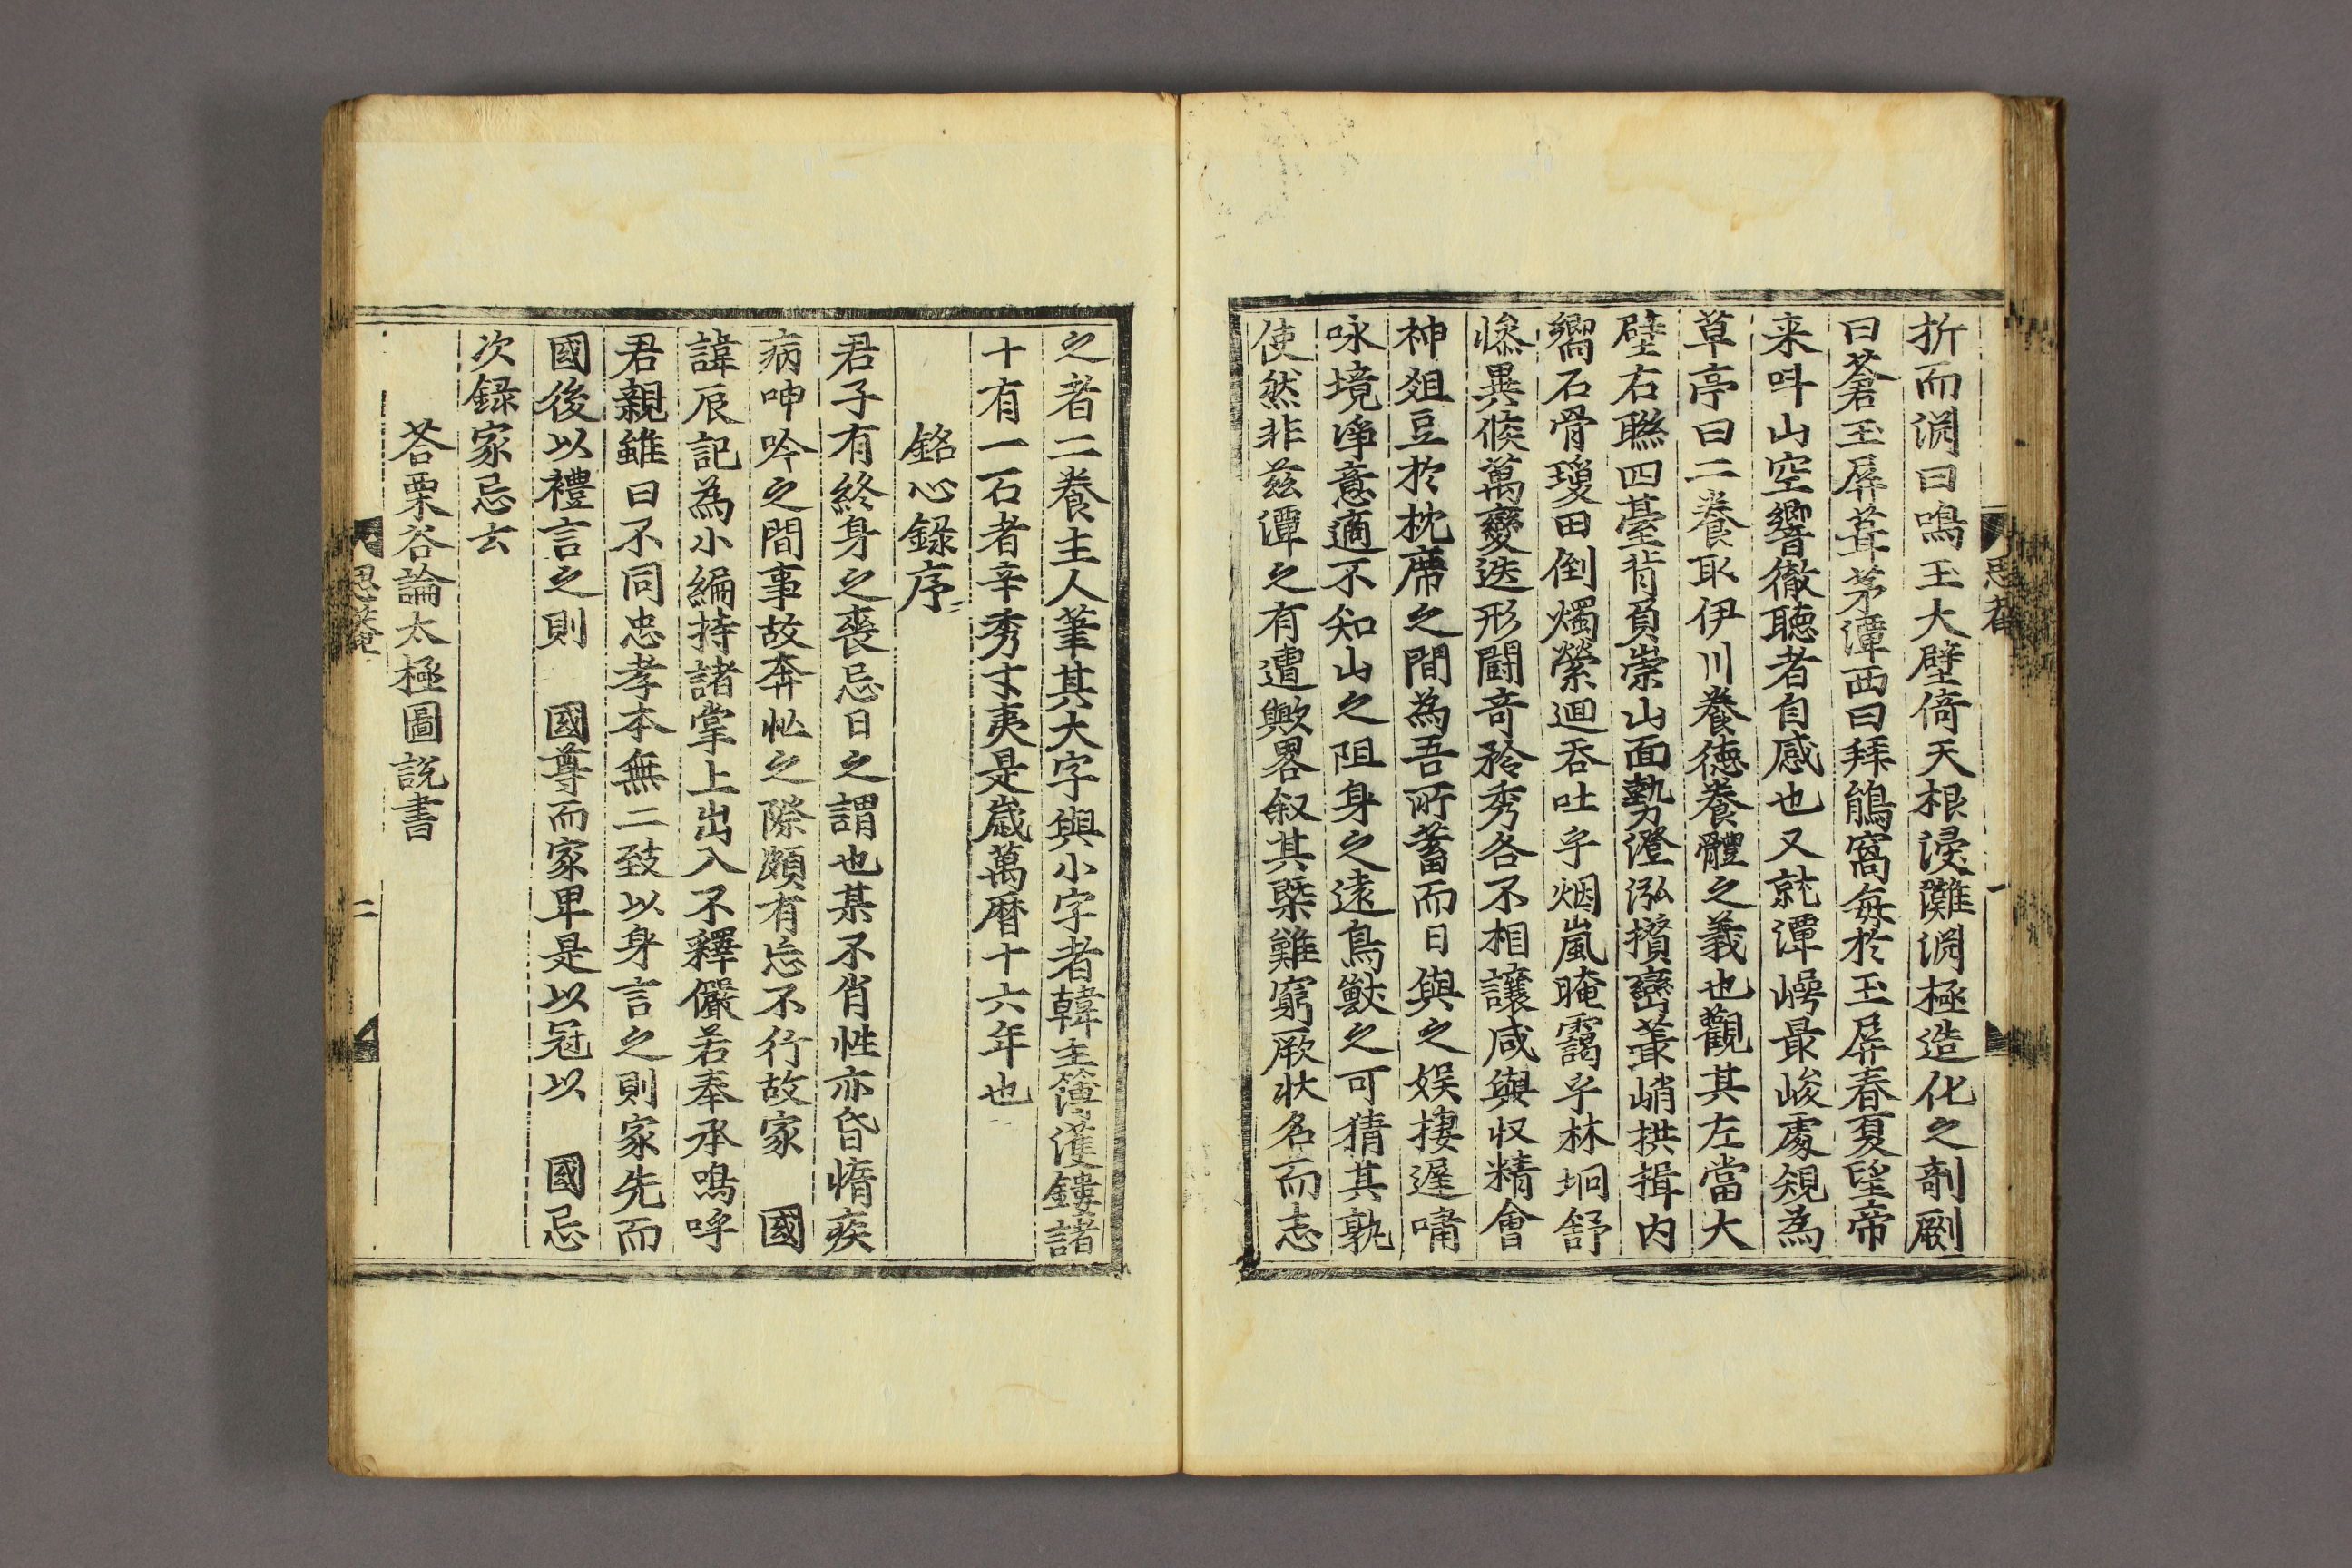 折而淵曰鳴玉大壁倚天根浸灘淵極造化之剞劂
曰蒼玉屏葺茅潭西曰拜鵑窩每於玉屏春夏望帝
来呌山空響徹聴者自感也又就潭㠗最峻處䂓為
草亭曰二養取伊川養徳養體之義也觀其左當大
壁右聮四臺背負崇山面勢澄泓攢巒叢峭拱揖内
嚮石骨瓊田倒燭縈迴吞吐乎烟嵐晻靄乎林坰舒
惨異候萬變迭形闘奇矜秀各不相讓咸與収精會
神爼豆於枕席之間為吾所蓄而日與之娱捿遲嘯
咏境淨意適不知山之阻身之遠鳥獸之可猜其孰
使然非兹潭之有遭歟畧叙其槩難窮厥状名而志
思菴
一
之者二養主人筆其大字與小字者韓主簿濩鏤諸
十有一石者辛秀才夷是歳萬曆十六年也
銘心録序
君子有終身之喪忌日之謂也某不肖性亦昏惰疾
病呻吟之間事故奔忙之際頗有忘不行故家 國
諱辰記為小編持諸掌上出入不釋儼若奉承嗚呼
君親雖曰不同忠孝本無二致以身言之則家先而
國後以禮言之則 國尊而家卑是以冠以 國忌
次録家忌云
荅栗谷論太極圖説書
思菴
二